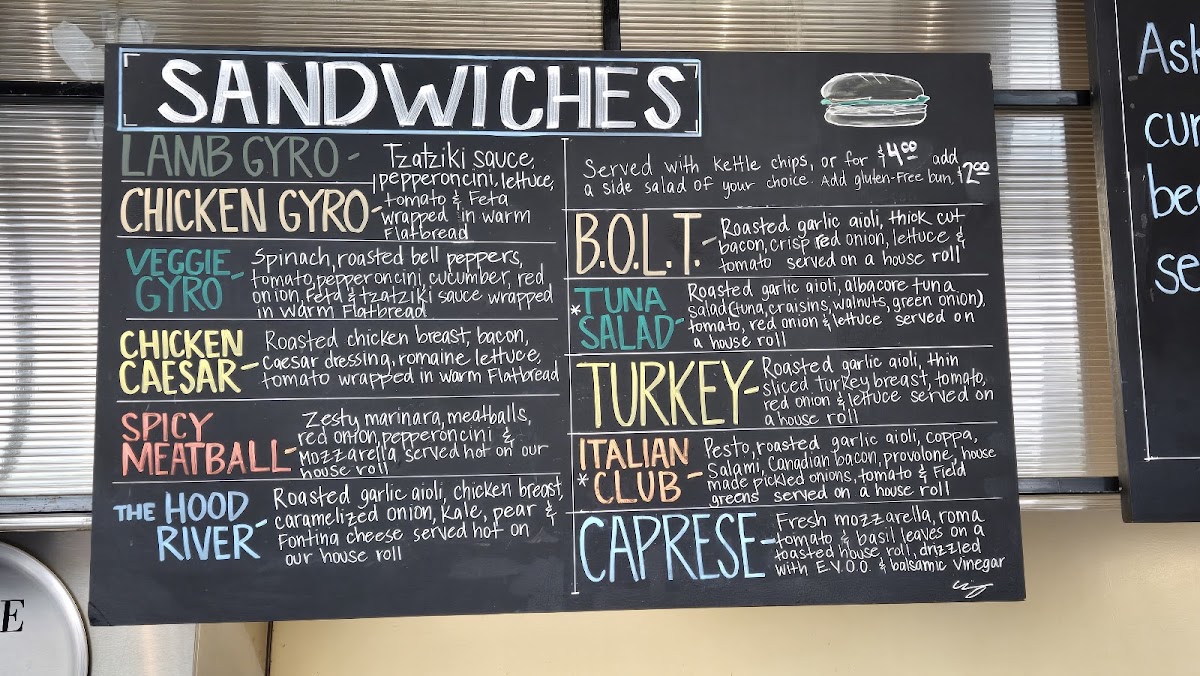 SANDWICHES
LAMB GYRO -
CHICKEN GYRO -
Tzatziki sauce,
pepperoncini, lettuce,
tomato & Feta
wrapped in warm
Flatbread
VEGGIE
GYRO -
Spinach, roasted bell peppers,
tomato, pepperoncini, cucumber, red
onion, feta & tzatziki sauce wrapped
in warm Flatbread
CHICKEN
CAESAR -
Roasted chicken breast, bacon,
caesar dressing, romaine lettuce,
tomato wrapped in warm Flatbread
SPICY
MEATBALL -
Zesty marinara, meatballs,
red onion, pepperoncini &
mozzarella served hot on our
house roll
THE HOOD
RIVER -
Roasted garlic aioli, chicken breast,
caramelized onion, kale, pear &
Fontina cheese served hot on
our house roll
Served with kettle chips, or for $4.00 add
a side salad of your choice. Add gluten-free bun, $2.00
B.O.L.T. -
Roasted garlic aioli, thick cut
bacon, crisp red onion, lettuce &
tomato served on a house roll
* TUNA
SALAD -
Roasted garlic aioli, albacore tuna
salad (tuna, craisins, walnuts, green onion),
tomato, red onion & lettuce served on
a house roll
TURKEY -
Roasted garlic aioli, thin
sliced turkey breast, tomato,
red onion & lettuce served on
a house roll
ITALIAN
* CLUB -
Pesto, roasted garlic aioli, coppa,
Salami, Canadian bacon, provolone, house
made pickled onions, tomato & Field
greens served on a house roll
CAPRESE -
Fresh mozzarella, roma
tomato & basil leaves on a
toasted house roll, drizzled
with E.V.O.O. & balsamic vinegar
Ask
E